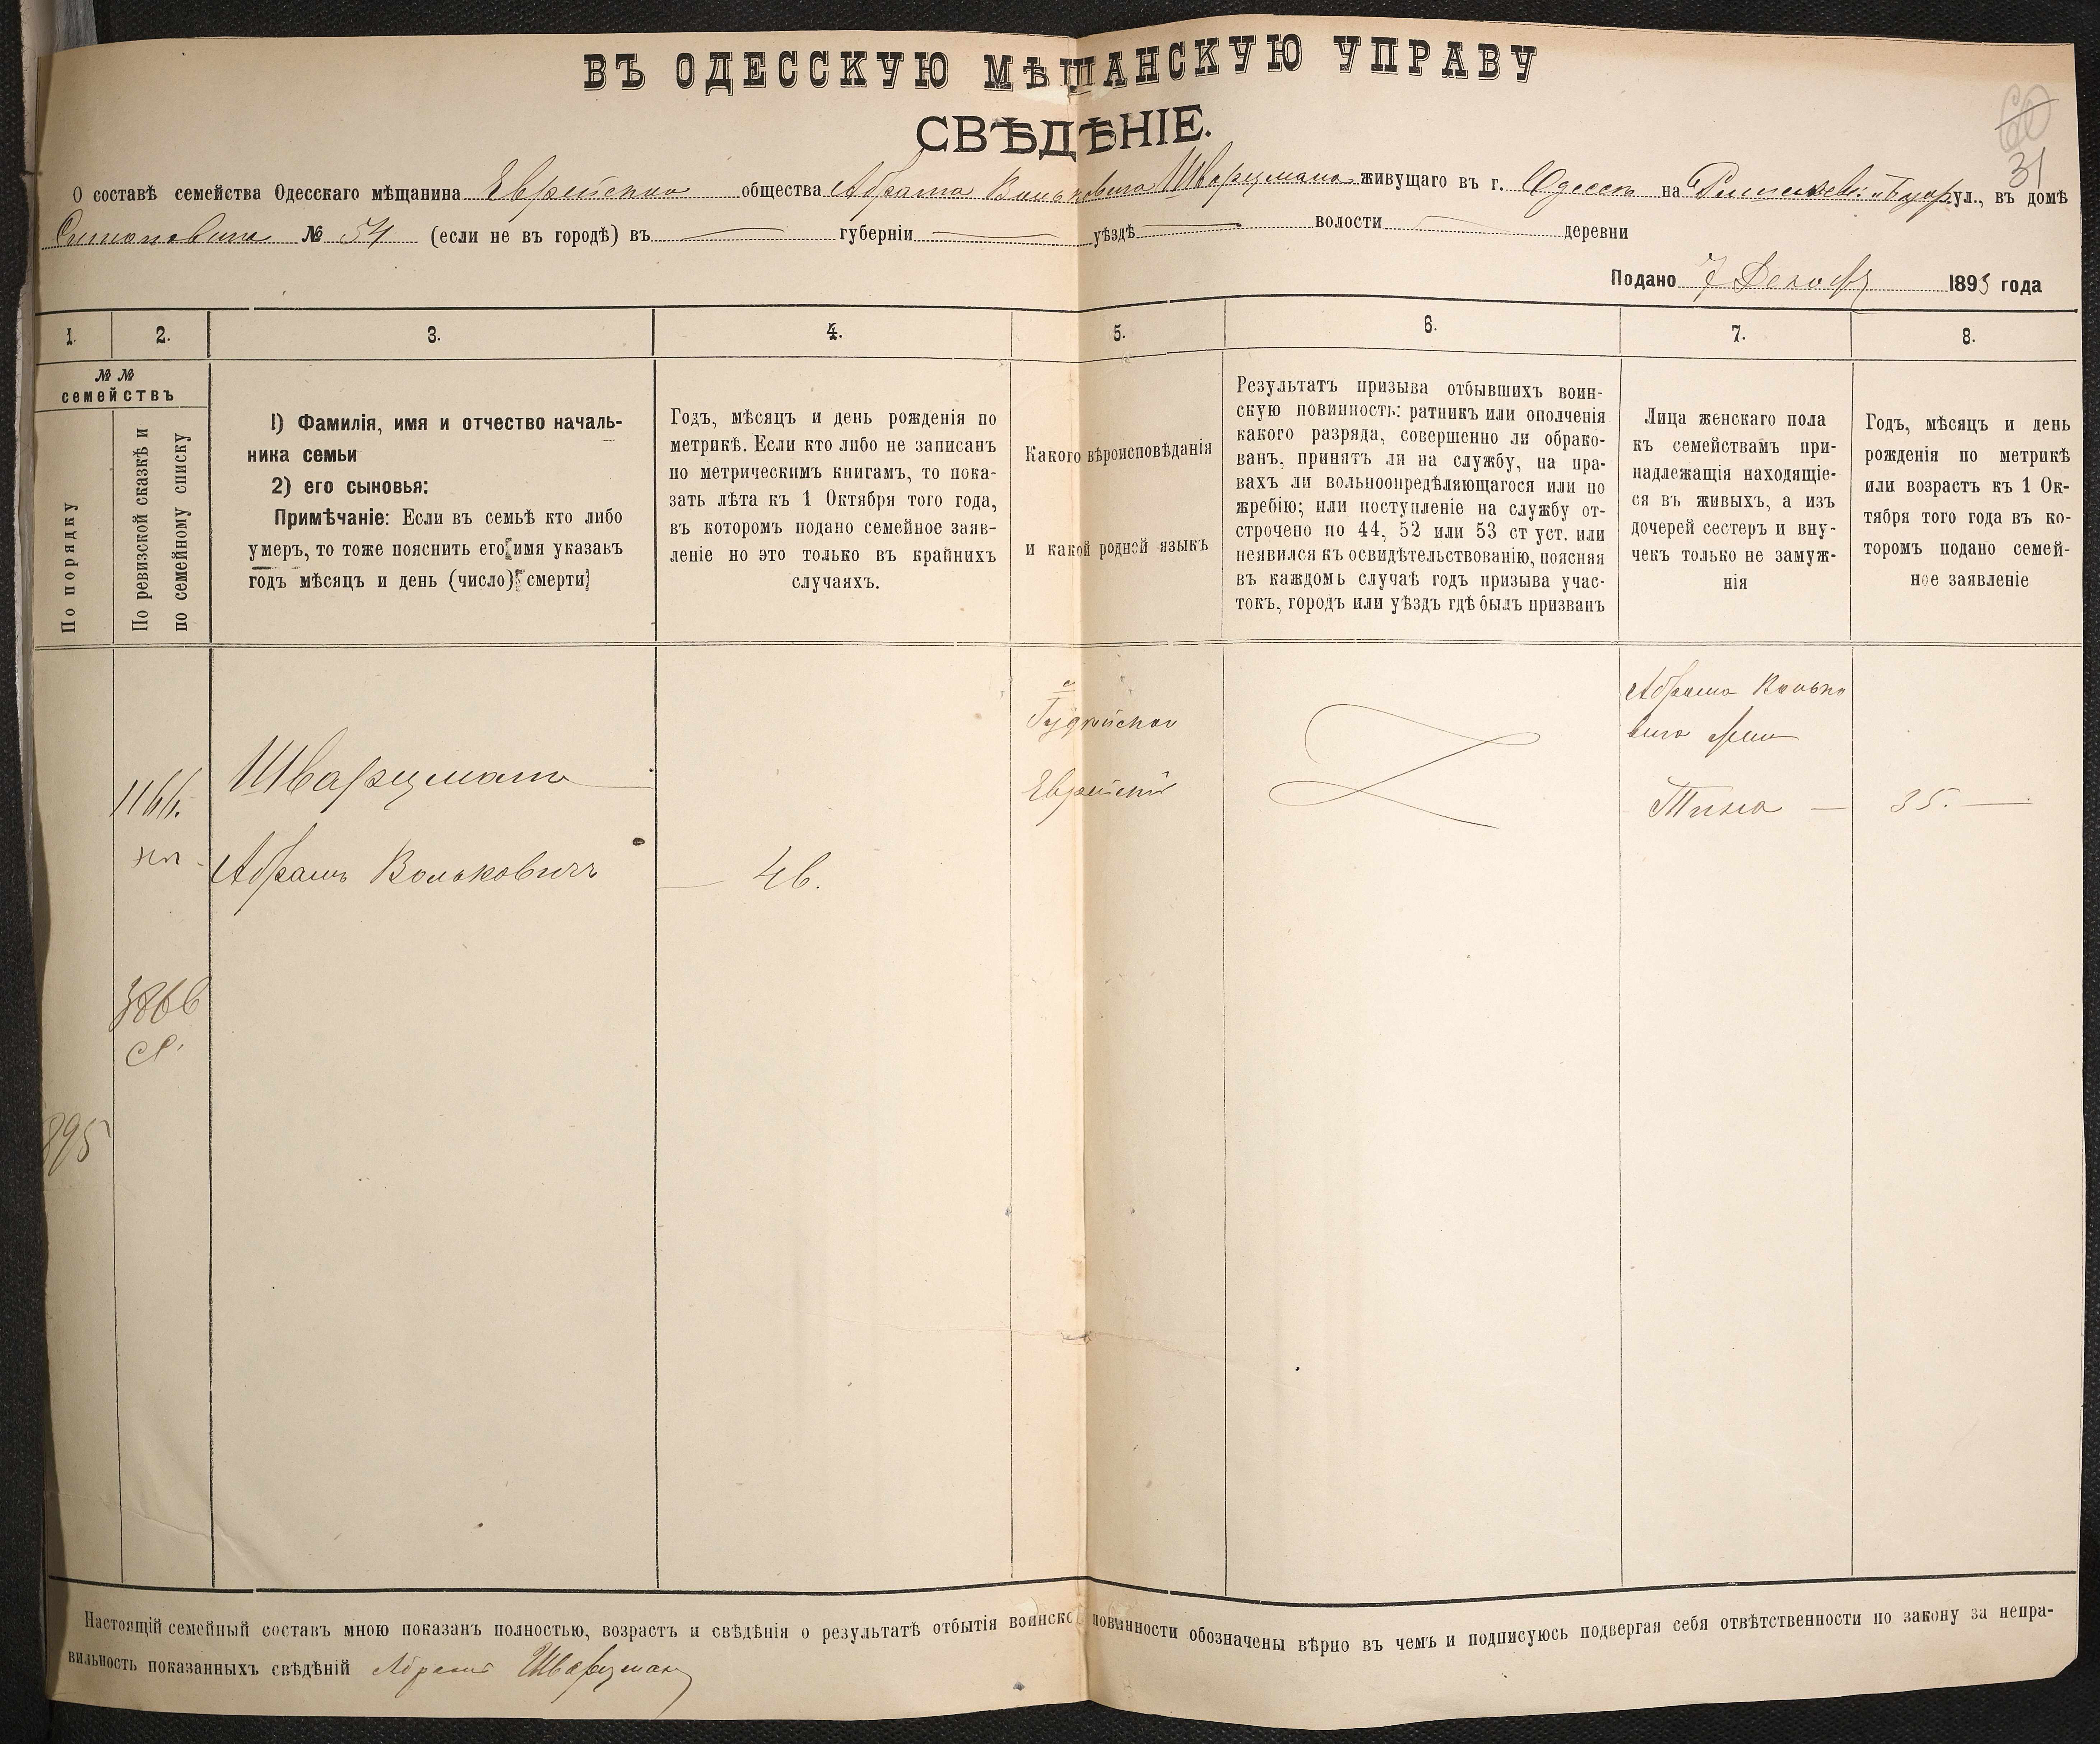 ВЪ ОДЕССКУЮ МѢЩАНСКУЮ УПРАВУ
СВѢДѢНІЕ.
31
О составѣ семейства Одесскаго мѣщанина Еврейскаго общества Абрама Вольковича Шварцмана живущаго въ г. Одессѣ на ул., въ домѣ
№ 54 (если не въ городѣ) въ губерніи уѣздѣ волости деревни
Подано 7 Декабр 1893 года
1. 2. 3. 4. 5. 6. 7. 8.
№ №
семействъ
По порядку
По ревизской сказкѣ и
по семейному списку
1) Фамилія, имя и отчество началь-
ника семьи
2) его сыновья:
Примѣчаніе: Если въ семьѣ кто либо
умеръ, то тоже пояснить его имя указавъ
годъ мѣсяцъ и день (число) смерти
Годъ, мѣсяцъ и день рожденія по
метрикѣ. Если кто либо не записанъ
по метрическимъ книгамъ, то пока-
зать лѣта къ 1 Октября того года,
въ которомъ подано семейное заяв-
леніе но это только въ крайнихъ
случаяхъ.
Какого вѣроисповѣданія
и какой родной языкъ
Результатъ призыва отбывшихъ воин-
скую повинность: ратникъ или ополченія
какого разряда, совершенно ли обрако-
ванъ, принятъ ли на службу, на пра-
вахъ ли вольноопредѣляющагося или по
жребію; или поступленіе на службу от-
строчено по 44, 52 или 53 ст уст. или
неявился къ освидѣтельствованію, поясняя
въ каждомъ случаѣ годъ призыва учас-
токъ, городъ или уѣздъ гдѣ былъ призванъ
Лица женскаго пола
къ семействамъ при-
надлежащія находящіе-
ся въ живыхъ, а изъ
дочерей сестеръ и вну-
чекъ только не замуж-
нія
Годъ, мѣсяцъ и день
рожденія по метрикѣ
или возрастъ къ 1 Ок-
тября того года въ ко-
торомъ подано семей-
ное заявленіе
1166.
Шварцманъ
Абрамъ Вольковичъ
46.
Іудейскаго
Еврейскій
Абрама Волько
вича жена
Тина
35.
3866
895
Настоящій семейный составъ мною показанъ полностью, возрастъ и свѣдѣнія о результатѣ отбытія воинской повинности обозначены вѣрно въ чемъ и подписуюсь подвергая себя отвѣтственности по закону за непра-
вильность показанныхъ свѣдѣній Абрамъ Шварцман